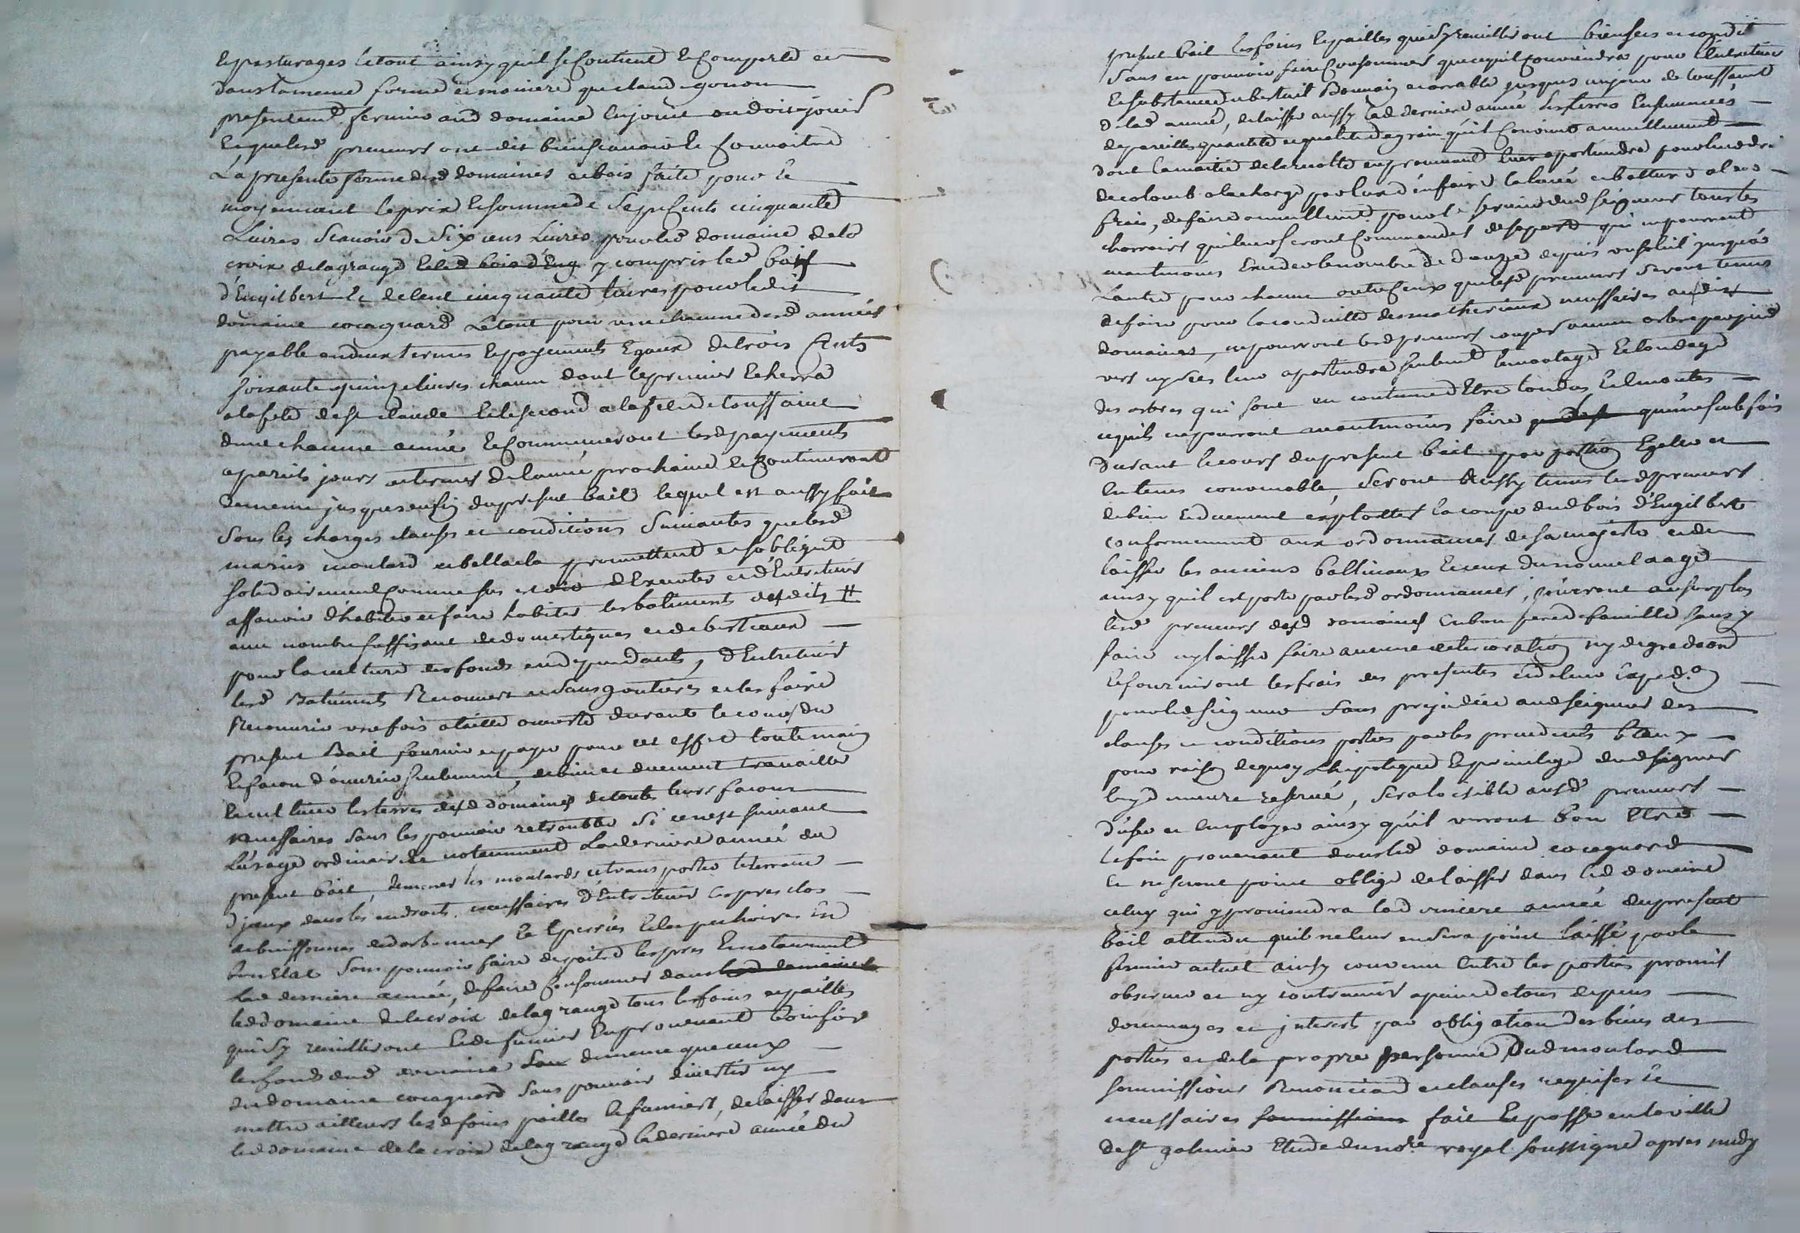 et pasturages le tout ainsy quil se Contient et Comporte et
dans la meme forme et maniere que claud gonon
presentement fermier aud domaine en jouit ou doit jouir
Et que lesd preneurs ont dit bien scavoir et Connoitre
La presente ferme desd domaines et bois faite pour et
moyennant le prix et somme de Sept Cents cinquante
Livres Scavoir de Six cens Livres pour led domaine de la
croix de la grange et led bois d'Eng y compris led bois
d'Engilbert et de Cent cinquante livres pour ledit
domaine cocagnard Le tout pour une chacune desd années
payable en deux termes et payements Egaux de trois Cents
soixante quinze livres chacun dont le premier Echerra
a la fete de st claude et le second a la fete de toussaint
dune chacune année et Commenceront lesd payements
a pareils jours et termes de lannée prochaine et Continueront
de meme jusques en fin du present bail lequel est aussy fait
Sous les charges clauses et conditions Suivantes que lesd
mariés moulard et promettent et sobligent
solidairement comme sus est dit d'Executer et d'Entretenir
assavoir d'habiter et faire habiter les batiments desdits #
avec nombre suffisant de domestiques et de bestiaux
pour la culture des fonds en dependants, d'Entretenir
lesd Batiments Recouverts et sans goutieres et les faire
Recouvrir une fois a taille ouverte durant le cours du
present Bail fournir et payer pour cet effet toute main
Et facon d'ouvrier seulement, de bien et duement travailler
Et cultiver les terres desd domaines de toutes leurs facons
necessaires sans les pouvoir retroubler Si ce nest suivant
L'usage ordinaire et notamment La derniere année du
present bail, demener les et transporter le terrain
d'jceux dans les endroits necessaires d'Entretenir les pres clos
et Epierrés et les En
bon Etat Sans pouvoir faire depaitre les pres Et notamment
lad derniere année, de faire Consommer dans led domaine
led domaine de la croix de la grange tous les foins et pailles
qui sy recuilliront Et de fumier En provenant bonifier
les fonds dud domaine de meme que ceux
du domaine cocagnard Sans pouvoir divertir ny
mettre ailleurs lesd foins pailles et fumiers, de laisser dans
led domaine de la croix de la grange la derniere année du
present bail les foins et pailles qui sy recuilliront bien secs et conditionnés
Sans en pouvoir faire Consommer que ce quil Conviendra pour L'Entretien
Et subsistance du bestail et arrable jusques au jour de toussaint
de lad année, de laisser aussy lad derniere année Les terres Ensemencées
de pareille quantité et qualité de grain quil Convient annuellement
dont la moitié de la recolte en provenant Leur apartiendra pour
de colomb a la charge par luy d'en faire la levée et batture a leurs
frais, de faire annuellement pour le service dud seigneur tous les
charrois qui leurs seront Commandés de sa part qui ne pourront
neantmoins Exceder le nombre de douze depuis un soleil jusqu'a
Lautre pour chacun outre Ceux que lesd preneurs Seront tenus
de faire pour la conduitte des matheriaux necessaires ausdits
domaines, ne pourront lesd preneurs couper aucun arbre par pied
vers ny secs leur apartiendra seulement lemontage Et londage
des arbres qui sont en coutume d'Etre tondus Et Emontés
ce quils ne pourront neantmoins faire qu'une seule fois
durant le cours du present bail par portion Egale et
En tems convenable, Seront Aussy tenus lesd preneurs
de bien Et duement exploiter la coupe dud bois d'Engilbert
conformement aux ordonnances de sa majesté et de
laisser les anciens balliveaux Et ceux du nouvel aage
ainsy quil est porté par lesd ordonnances, jouiront au surplus
lesd preneurs desd domaines En bon pere de famille sans y
faire ny laisser faire aucune deterioration ny degradaon
Et fourniront les frais des presentes Et de leur Exped.on
pour led seigneur Sans prejudice aud seigneur des
clauses et conditions portées par les precedents Beaux
pour raison de quoy L'hipoteque Et privilege dud seigneur
luy demeure reservé, Sera loisible ausd preneurs
d'user et Employer ainsy qu'il verront bon Etre
Le foin provenant dans led domaine cocagnard
Et ne seront point obligé de laisser dans led domaine
celuy qui y proviendra lad derniere année du present
bail attendu quil ne leur en sera point laissé par le
fermier actuel Ainsy convenu Entre les parties promis
observer et ny contrevenir a peine de tous depens
dommages et jnterets par obligation des biens des
parties et de la propre personne Dud moulard
Soumissions Renonciaōns et clauses requises et
necessaires soumissions fait et passé en la ville
de St galmier Etude du no.re royal soussigné apres midy